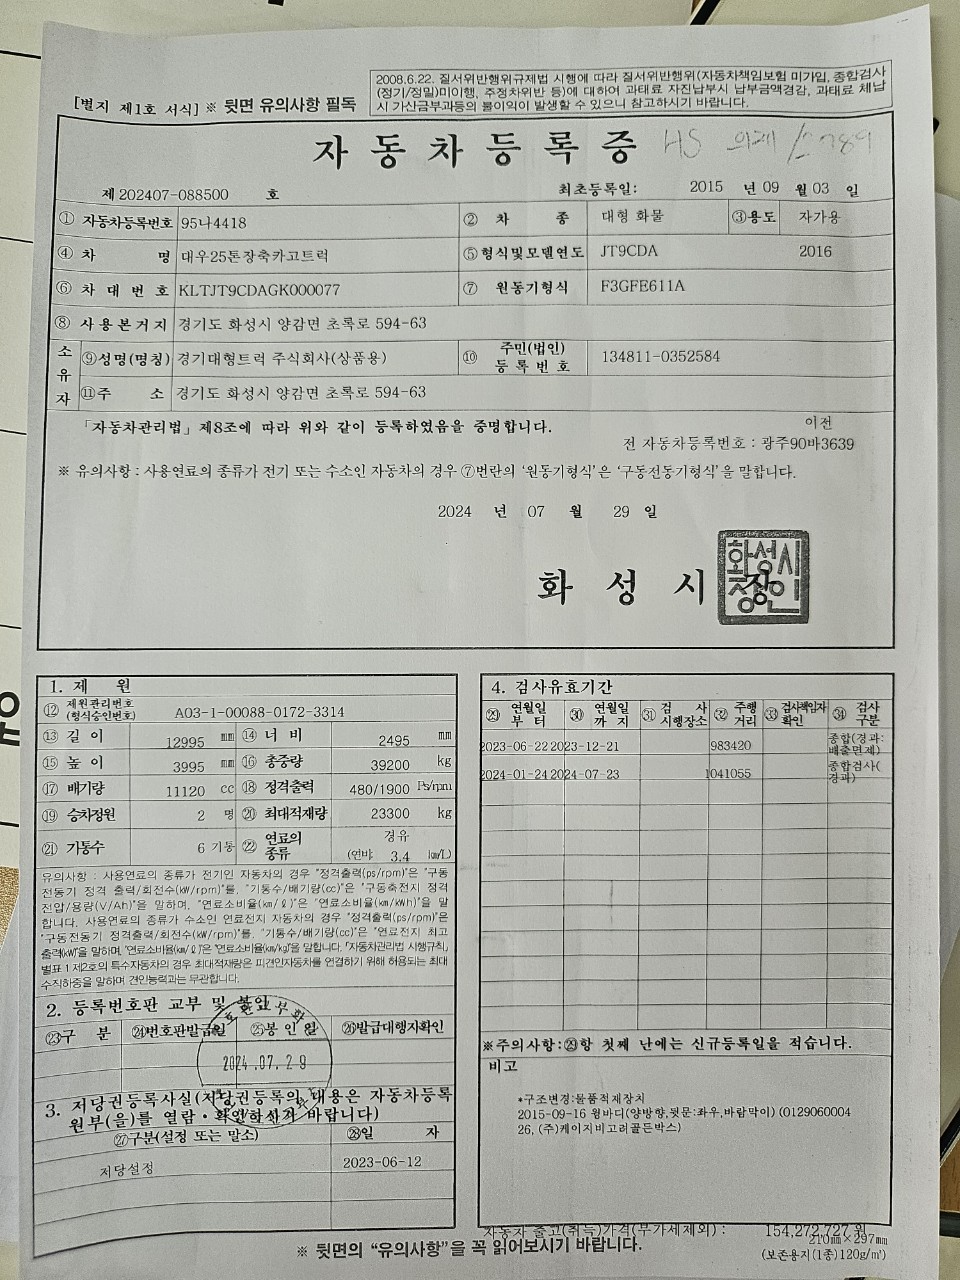 [별지 제1호 서식] ※ 뒷면 유의사항 필독
2008.6.22. 질서위반행위규제법 시행에 따라 질서위반행위(자동차책임보험 미가입, 종합검사
(정기/정밀)미이행, 주정차위반 등)에 대하여 과태료 자진납부시 납부금액경감, 과태료 체납
시 가산금부과등의 불이익이 발생할 수 있으니 참고하시기 바랍니다.
자동차등록증
HS
제 202407-088500 호 최초등록일: 2015 년 09 월 03 일
① 자동차등록번호 95나4418 ② 차 종 대형 화물 ③용도 자가용
④ 차 명 대우25톤장축카고트럭 ⑤형식및모델연도 JT9CDA 2016
⑥ 차대번호 KLTJT9CDAGK000077 ⑦ 원동기형식 F3GFE611A
⑧ 사용본거지 경기도 화성시 양감면 초록로 594-63
소유자 ⑨성명(명칭) 경기대형트럭 주식회사(상품용) ⑩ 주민(법인)등록번호 134811-0352584
⑪주 소 경기도 화성시 양감면 초록로 594-63
「자동차관리법」제8조에 따라 위와 같이 등록하였음을 증명합니다.
이전
전 자동차등록번호 : 광주90바3639
※ 유의사항 : 사용연료의 종류가 전기 또는 수소인 자동차의 경우 ⑦번란의 '원동기형식'은 '구동전동기형식'을 말합니다.
2024 년 07 월 29 일
화성시장
화성시
장인
1. 제 원
⑫ 제원관리번호 (형식승인번호) A03-1-00088-0172-3314
⑬ 길이 12995 mm ⑭ 너비 2495 mm
⑮ 높이 3995 mm ⑯ 총중량 39200 kg
⑰ 배기량 11120 cc ⑱ 정격출력 480/1900 Ps/rpm
⑲ 승차정원 2 명 ⑳ 최대적재량 23300 kg
㉑ 기통수 6 기통 ㉒ 연료의 종류 경유 (연비: 3.4 km/L)
유의사항 : 사용연료의 종류가 전기인 자동차의 경우 "정격출력(ps/rpm)"은 "구동
전동기 정격 출력/회전수(kW/rpm)"를, "기통수/배기량(cc)"은 "구동축전지 정격
전압/용량(V/Ah)"을 말하며, "연료소비율(km/ℓ)"은 "연료소비율(km/kWh)"을 말
합니다. 사용연료의 종류가 수소인 연료전지 자동차의 경우 "정격출력(ps/rpm)"은
"구동전동기 정격출력/회전수(kW/rpm)"를, "기통수/배기량(cc)"은 "연료전지 최고
출력(kW)"을 말하며, "연료소비율(km/ℓ)"은 "연료소비율(km/kg)"을 말합니다. 「자동차관리법 시행규칙」
별표 1 제2호의 특수자동차의 경우 최대적재량은 피견인자동차를 연결하기 위해 허용되는 최대
수직하중을 말하며 견인능력과는 무관합니다.
2. 등록번호판 교부 및 봉인
㉓구 분 ㉔번호판발급일 ㉕봉인일 ㉖발급대행자확인
2024.07.29
3. 저당권등록사실(저당권등록의 내용은 자동차등록
원부(을)를 열람·확인하시기 바랍니다)
㉗구분(설정 또는 말소) ㉘일 자
저당설정 2023-06-12
4. 검사유효기간
㉙ 연월일 부터 ㉚ 연월일 까지 ㉛ 검사 시행장소 ㉜ 주행 거리 ㉝ 검사책임자 확인 ㉞ 검사 구분
2023-06-22 2023-12-21 983420 종합(경과:배출면제)
2024-01-24 2024-07-23 1041055 종합검사(경과)
※주의사항:㉙항 첫째 난에는 신규등록일을 적습니다.
비고
*구조변경:물품적재장치
2015-09-16 윙바디(양방향,뒷문:좌우,바람막이) (0129060004
26, (주)케이지비고려골든박스)
자동차 출고(취득)가격(부가세제외) : 154,272,727 원
※ 뒷면의 "유의사항"을 꼭 읽어보시기 바랍니다.
210㎜×297㎜
(보존용지(1종)120g/㎡)